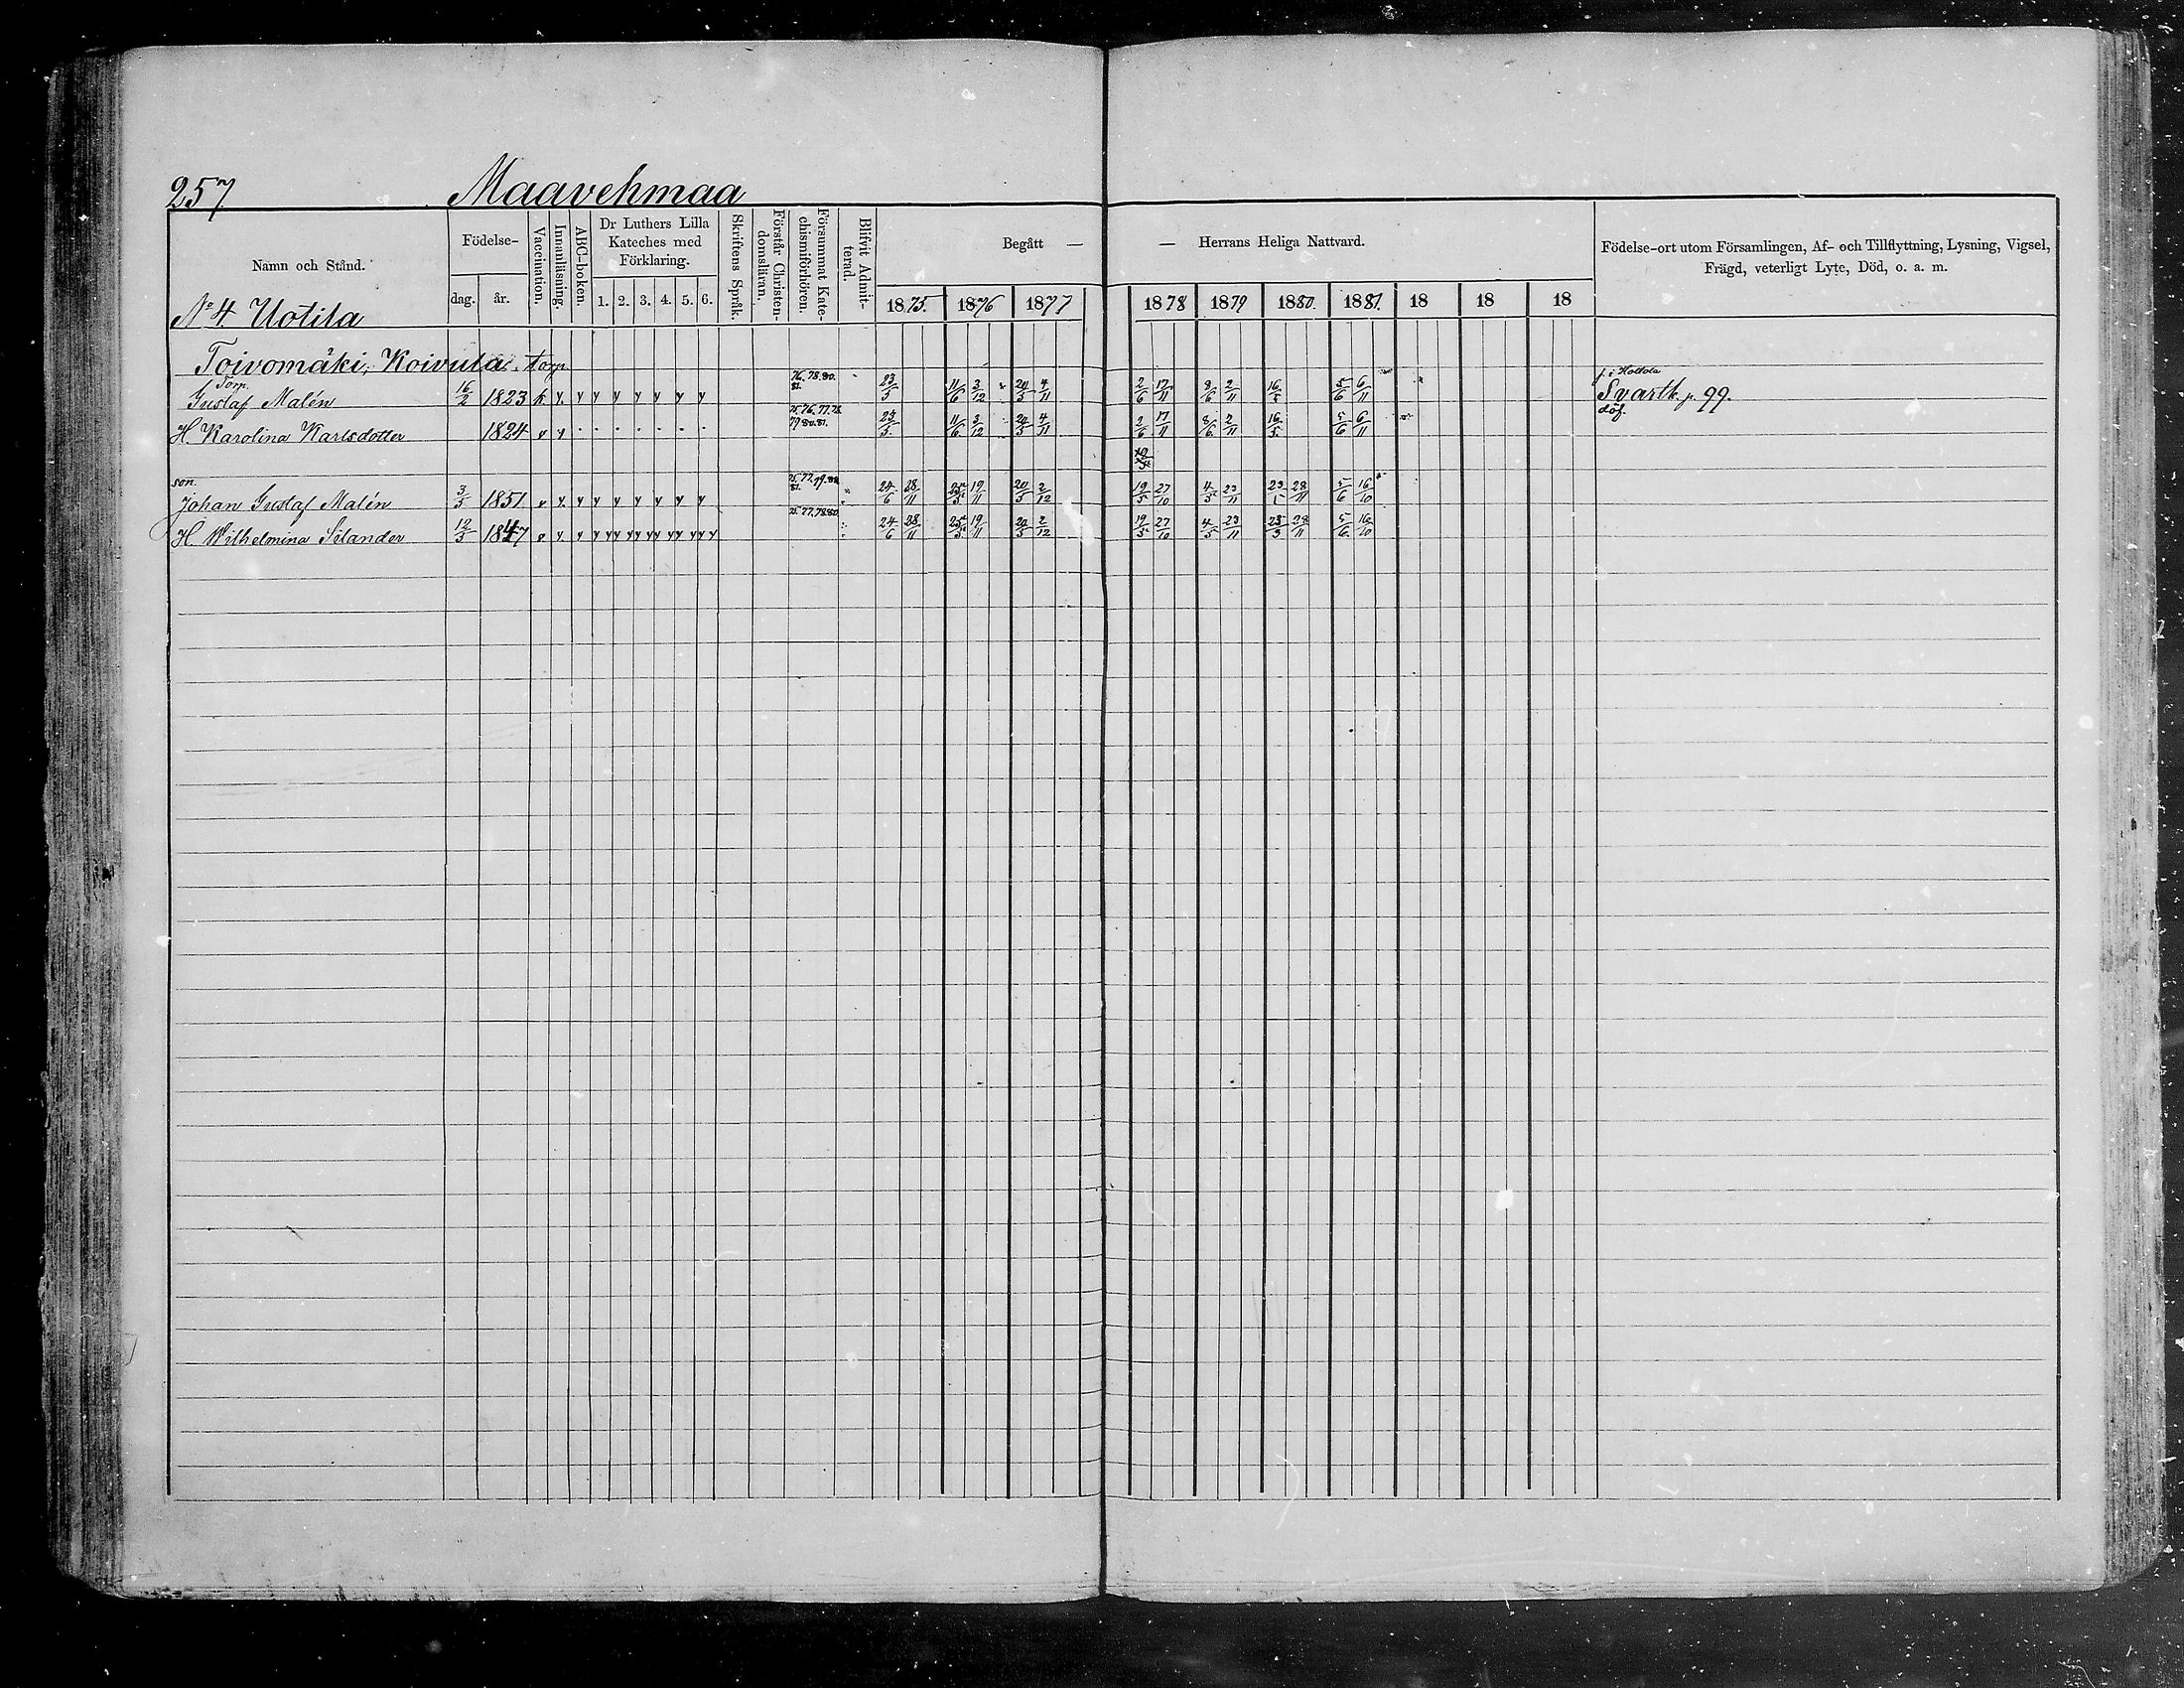 257 Maavehmaa
Namn och Stånd. Födelse- dag. år. Vaccination. Innanläsning. ABC-boken. Dr Luthers Lilla Kateches med Förklaring. 1. 2. 3. 4. 5. 6. Skriftens Språk. Förstår Christendomsläran. Försummat Katechismiförhören. Blifvit Admitterad. Begått — — Herrans Heliga Nattvard. Födelse-ort utom Församlingen, Af- och Tillflyttning, Lysning, Vigsel, Frägd, veterligt Lyte, Död, o. a. m.
1875. 1876 1877 1878 1879 1880. 1881. 18 18 18
No 4 Uotila
Toivomäki, Koivula. torp
Torp. 76. 78. 80. 81. f. i Hollola
Gustaf Malén 16/2 1823 k y. y y y y y y y 23/5 11/6 3/12 20/5 4/11 2/6 17/11 8/6 2/11 16/5 5/6 6/11 Svartk. p. 99.
75. 76. 77. 78. 79. 80. 81. döf.
H. Karolina Karlsdotter 1824 v y 23/5. 11/6. 3/12 20/5 4/11 2/6 17/11 8/6. 2/11 16/5. 5/6 6/11
son. 81.
Johan Gustaf Malén 3/5 1851 v y. y y y y y y y 24/6 28/11 19/11 20/5 2/12 19/5 27/10 4/5 23/11 28/11 5/6 16/10
75. 77. 78. 80.
H. Wilhelmina Silander 12/3 1847 v y. y y yy yy yy yy yy y 24/6 28/11 19/11 20/5 2/12 19/5 27/10 4/5 23/11 23/3 28/11 5/6. 16/10